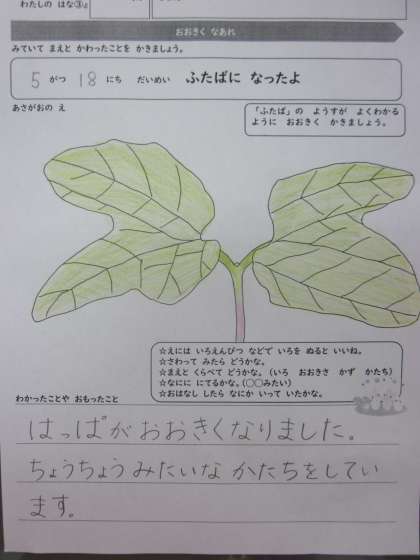 わたしの はな③
おおきく なあれ
みていて まえと かわったことを かきましょう。
5 がつ 18 にち だいめい ふたばに なったよ
あさがおの え
「ふたば」の ようすが よくわかる
ように おおきく かきましょう。
☆えには いろえんぴつ などで いろを ぬると いいね。
☆さわって みたら どうかな。
☆まえと くらべて どうかな。(いろ おおきさ かず かたち)
☆なにに にてるかな。(○○みたい)
☆おはなし したら なにか いって いたかな。
わかったことや おもったこと
はっぱがおおきくなりました。
ちょうちょうみたいな かたちをしてい
ます。